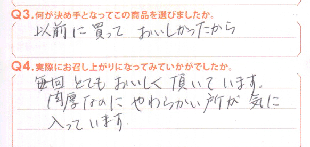 Q3.何が決め手となってこの商品を選びましたか。
以前に買って おいしかったから
Q4.実際にお召し上がりになってみていかがでしたか。
毎回 とても おいしく 頂いています。
肉厚なのに やわらかい 所が 気に
入っています